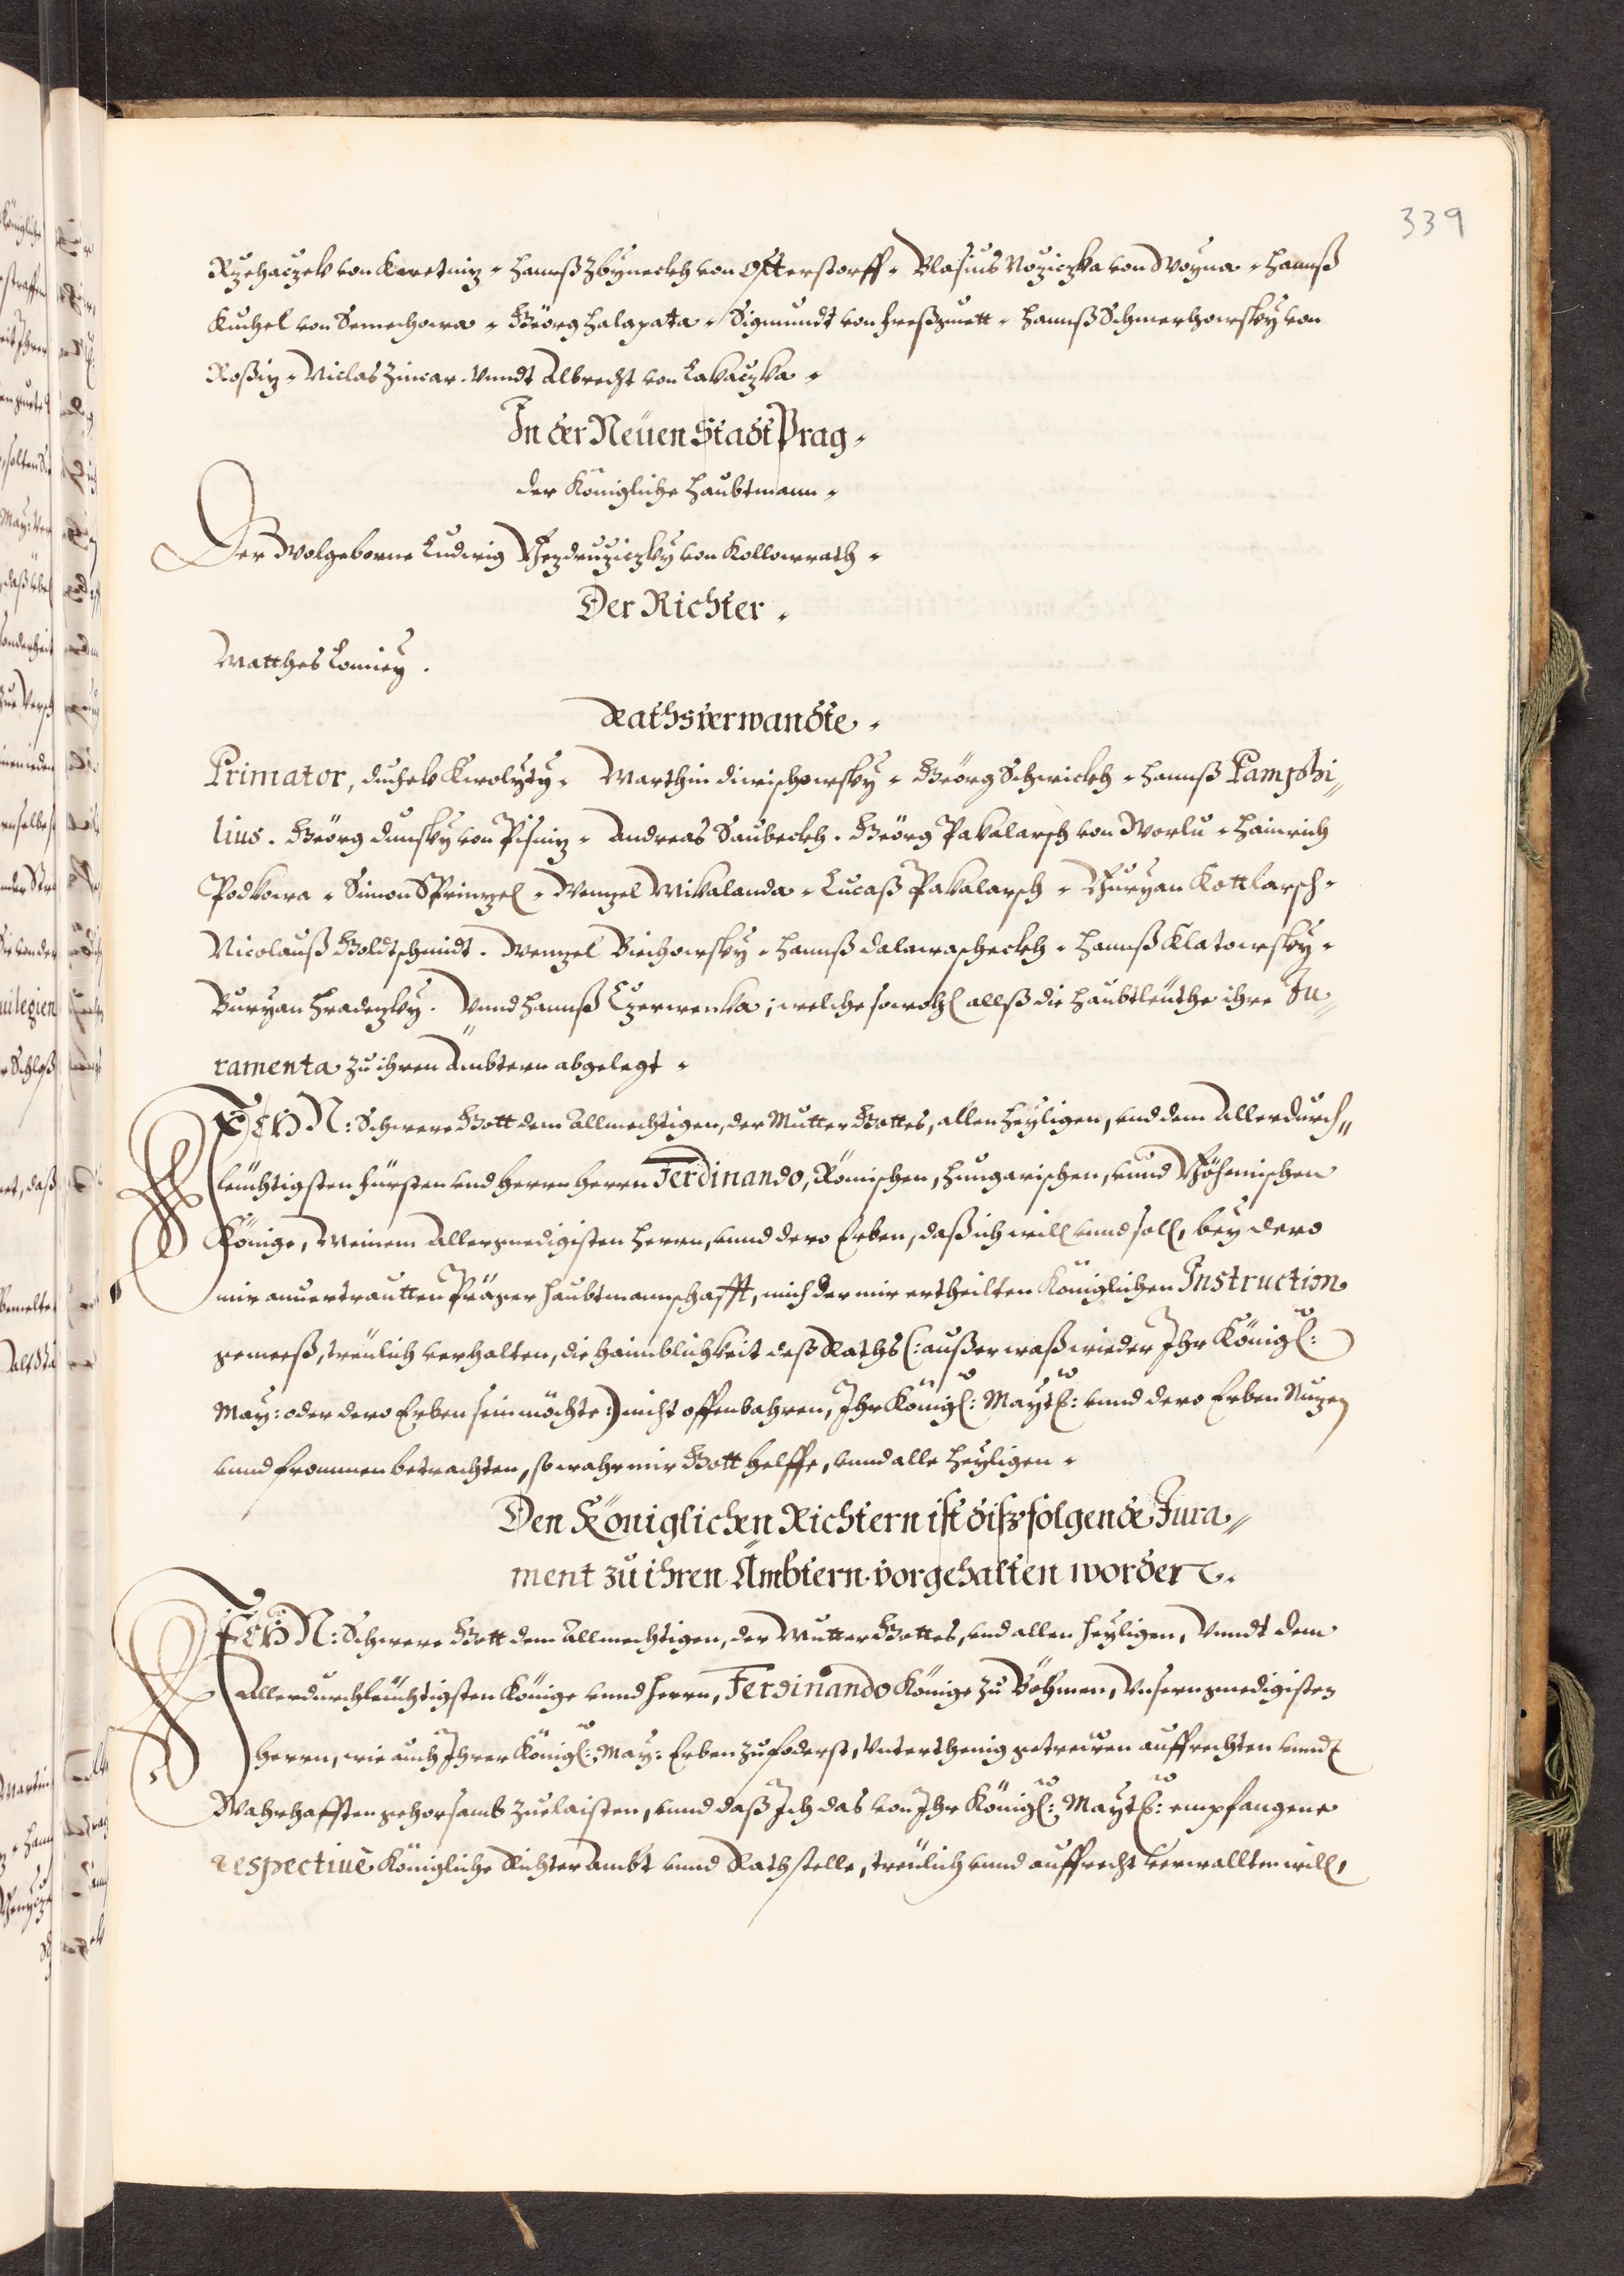 339
Rzehaczek von Kwetniz. Hannß Zbyneckh von Otterstorff. Blasius Noziczka von Woyna. Hannß
Kuchel von Semechowa. Geörg Halapata. Sigmundt von Freßpuett. Hannß Schmerhowsky von
Roßiz. Niclas Zimar. Vnndt Albrecht von Lakaczka.
In der Neüen Stadt Prag.
der Königliche Haubtmann.
Der Wolgeborne Ludwig Bezdruziczky von Kollowrath.
Der Richter.
Matthes Lomiez.
Rathsverwandte.
Primator, Duchek Kwolyty. Marthin Diwischowsky. Geörg Schwickh. Hannß Pamphi„
lius. Geörg Dunsky von Pisniz. Andreas Saubeckh. Geörg Pakalarsch von Worlu. Hainrich
Podkowa. Simon Sprinzel. Wenzel Mikalanda. Lucaß Pakalarsch. Buryan Kottlarsch.
Nicolauß Goldtschmidt. Wenzel Biechowsky. Hannß Dalawascheckh. Hannß Klatowsky.
Buryan Hradezky. Vnnd Hannß Czerwenka; welche sowohl allß die Haubtleüthe ihre Ju„
ramenta zu ihren Ämbtern abgelegt.
ICH N: Schwere Gott dem Allmechtigen, der Mutter Gottes, allen Heyligen, vnd dem Allerdurch„
leüchtigsten Fürsten vnd Herrn Herrn Ferdinando, Römischen, Hungarischen, vnnd Böhmischen
Könige, Meinem Allergnedigisten Herrn, vnnd dero Erben, daß ich will vnnd soll, bey dero
mir anuertrautten Präger Haubtmannschafft, mich der mir ertheilten Königlichen Instruction
gemeeß, treülich verhalten, die Haimblichkeit deß Raths (: außer waß wieder Ihr Königl:
May: oder dero Erben sein möchte :) nicht offenbahren, Ihr Königl: Maytt: vnnd dero Erben Nuzen
vnnd frommen betrachten, so wahr mir Gott helffe, vnnd alle Heyligen.
Den Königlichen Richtern ist diß folgende Jura„
ment zu ihren Ämbtern vorgehalten worden.
ICH N: Schwere Gott dem Allmechtigen, der Mutter Gottes, vnd allen Heyligen, Vnndt dem
Allerdurchleüchtigsten Könige vnnd Herrn, Ferdinando Könige zu Böhmen, Vnsern gnedigisten
Herrn, wie auch Ihrer Königl: May: Erben zufoderst, Vnterthenig getrewen auffrechten vnndt
Wahrhafften gehorsamb zuelaisten, vnnd daß Ich das von Ihr Königl: Maytt: empfangene
respectiuè Königliche Richter Ambt vnnd Rathstelle, treülich vnnd auffrecht verwallten will,